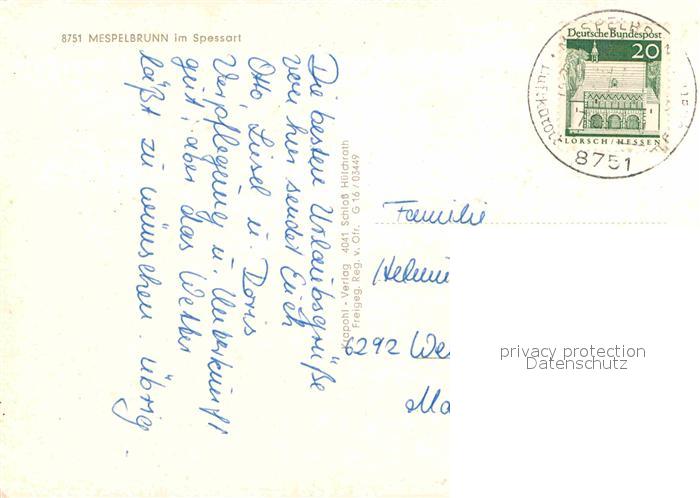 8751 MESPELBRUNN im Spessart
Deutsche Bundespost
20
LORSCH/HESSEN
8751
Die besten Urlaubsgrüße
von hier sendet Euch
Otto, Liesel u. Doris
Verpflegung u. Unterkunft
gut; aber das Wetter
läßt zu wünschen übrig.
Krapohl-Verlag 4041 Schloß Hülchrath
Freigeg. Reg. v. Ofr. G 16/03449
Familie
6292 We
privacy protection
Datenschutz